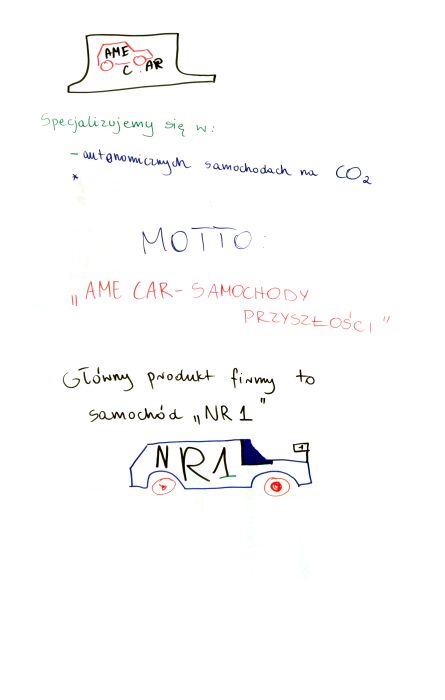 AME
C.AR
Specjalizujemy się w:
- autonomicznych samochodach na CO2
*
MOTTO:
„AME CAR - SAMOCHODY
PRZYSZŁOŚCI"
Główny produkt firmy to
samochód „NR 1"
NR1
1